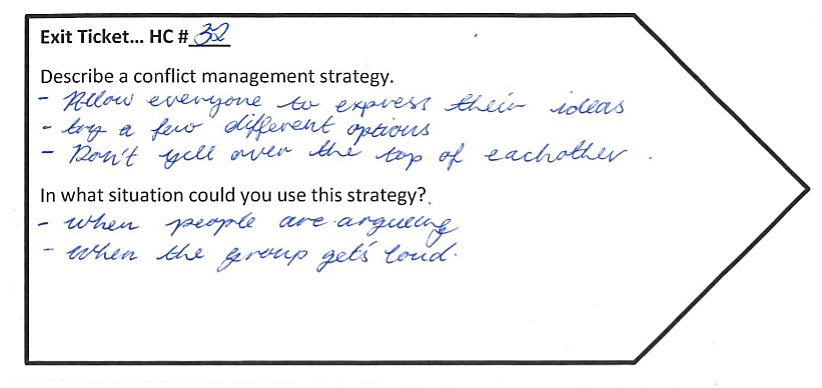 Exit Ticket... HC # 32
Describe a conflict management strategy.
- Allow everyone to express their ideas
- try a few different options
- Don't yell over the top of eachother.
In what situation could you use this strategy?
- when people are argueing
- When the group gets loud.